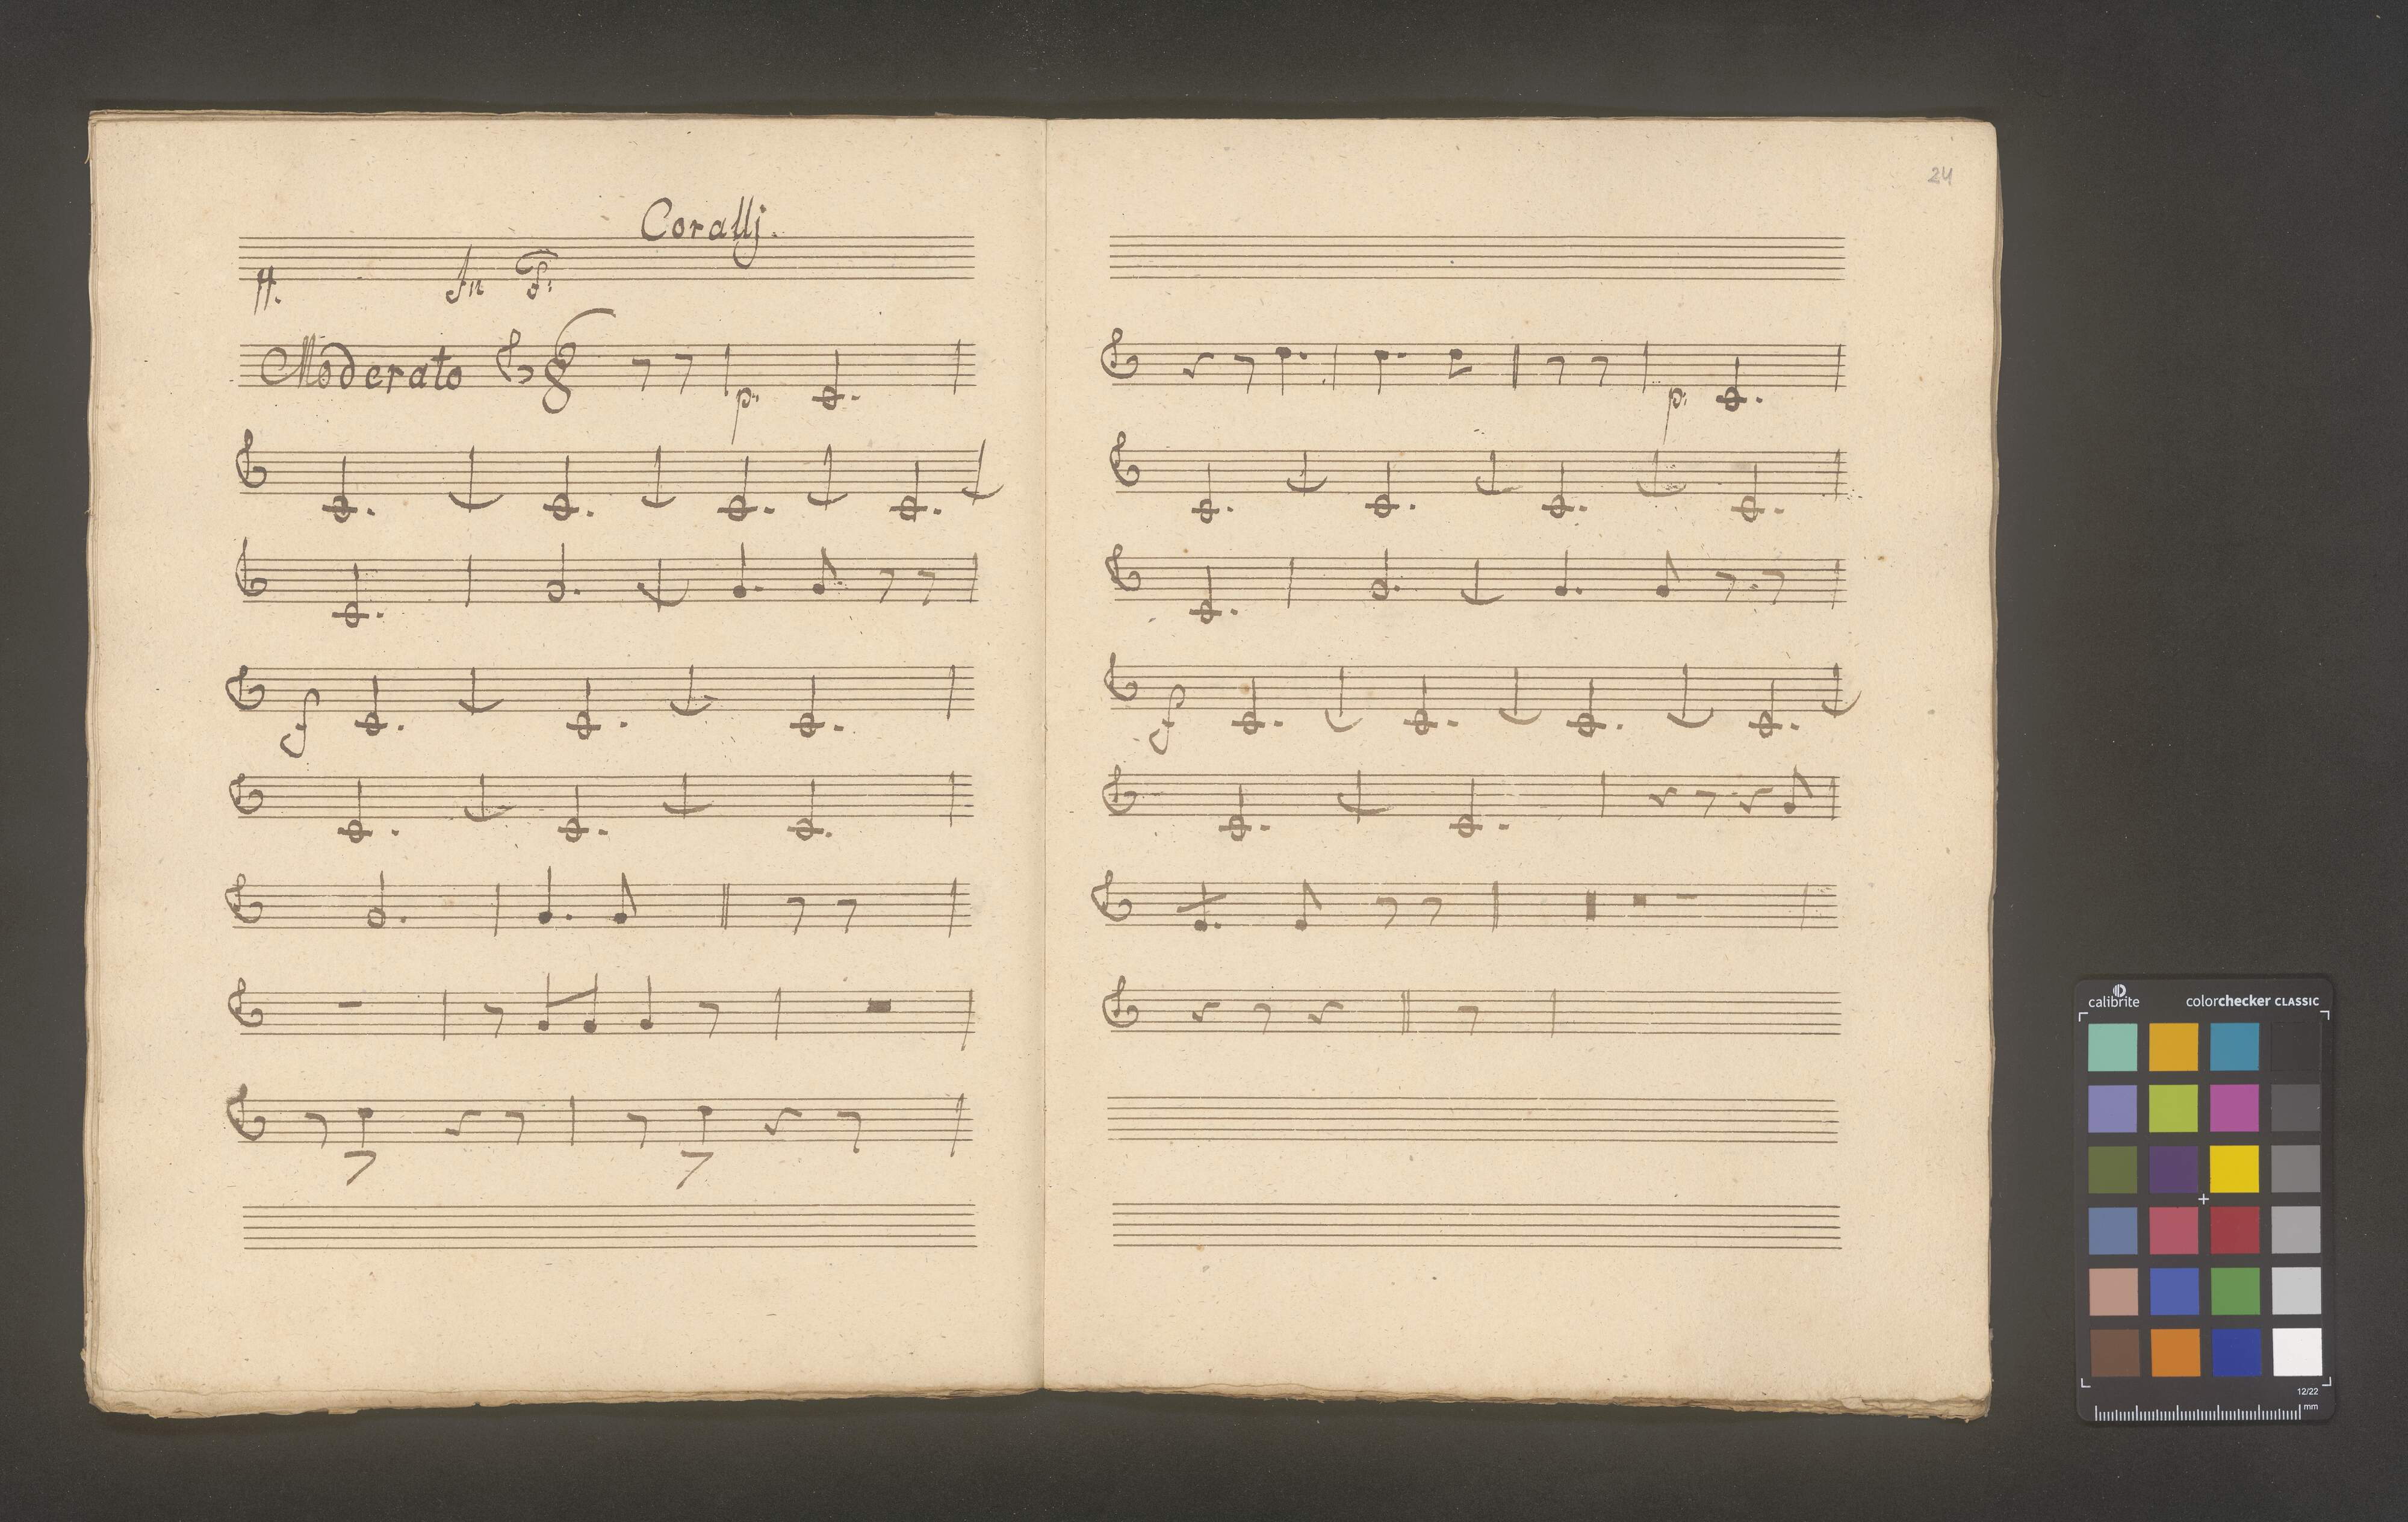 Coralli.
In F.
Moderato
p.
f
24
p.
f
calibrite colorchecker CLASSIC
12/22
mm